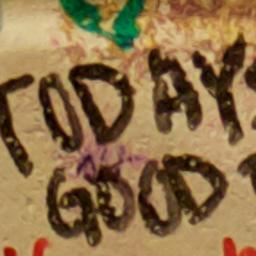 TODAYS
GOOD